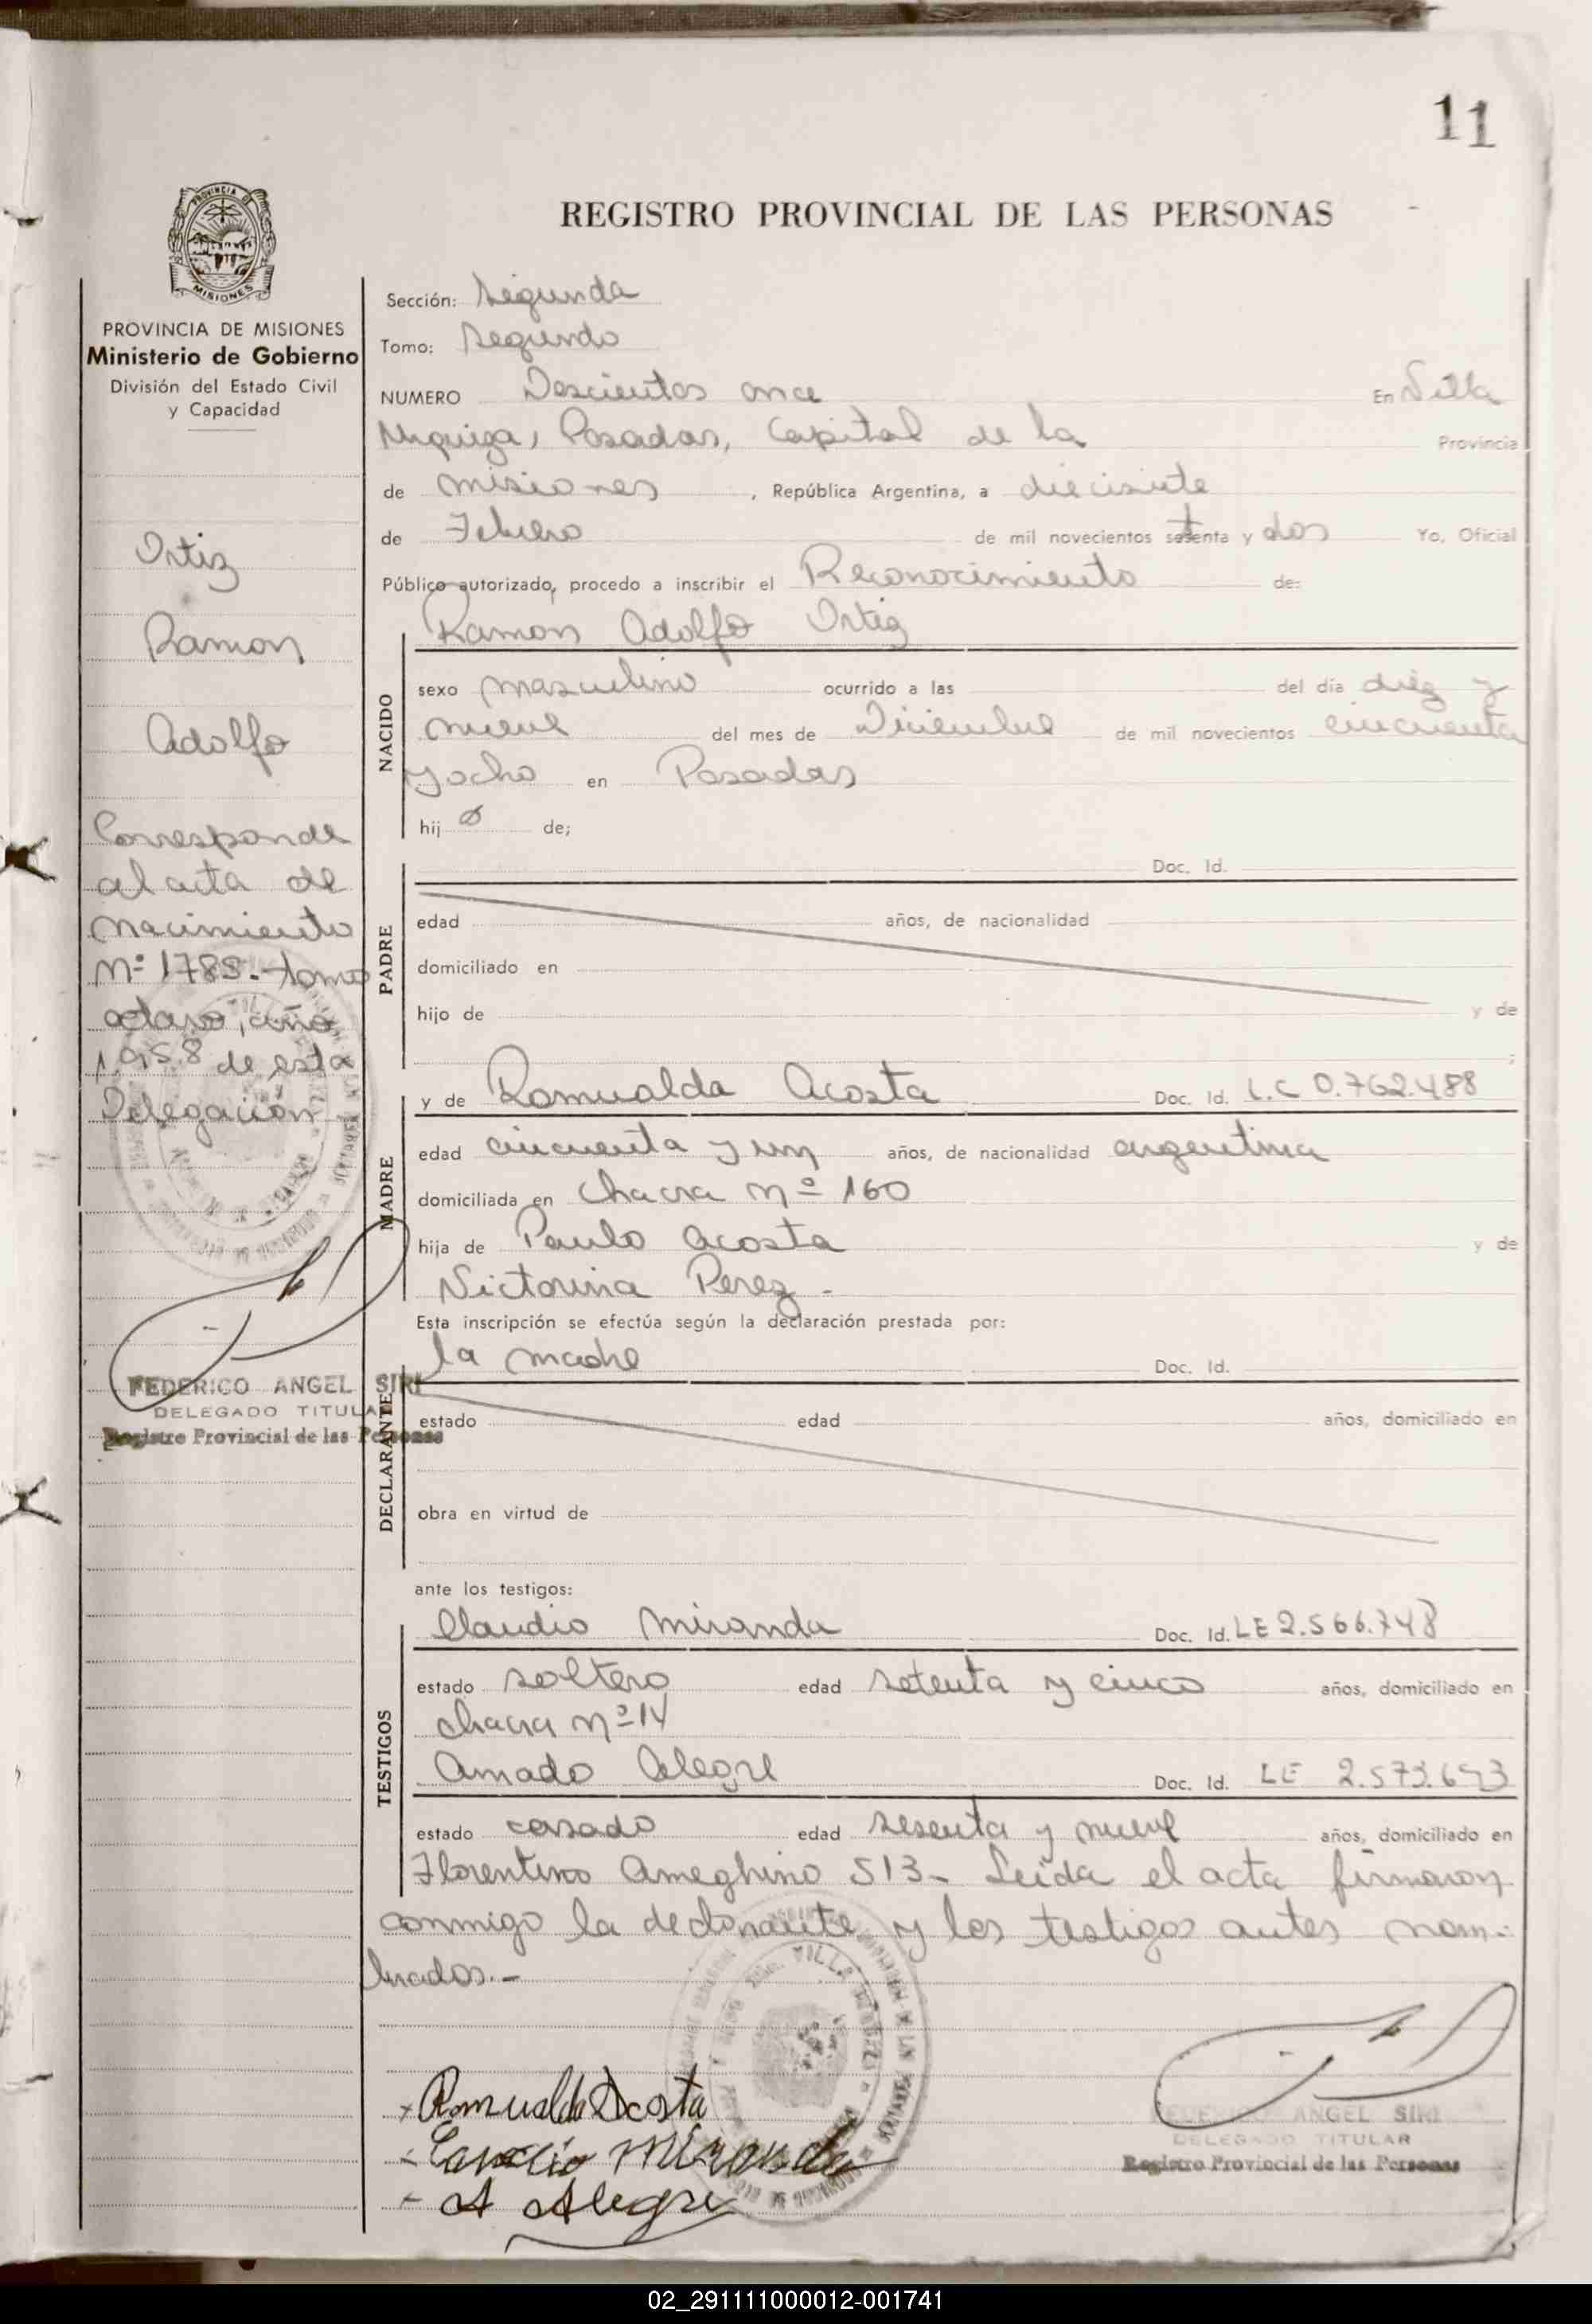 11
PROVINCIA DE
MISIONES
REGISTRO PROVINCIAL DE LAS PERSONAS
PROVINCIA DE MISIONES
Ministerio de Gobierno
División del Estado Civil
y Capacidad
Ortiz
Ramon
Adolfo
Corresponde
al acta de
nacimiento
Nº 1785.- tomo
octavo, año
1.958 de esta
Delegación
FEDERICO ANGEL SIRI
DELEGADO TITULAR
Registro Provincial de las Personas
Sección: Segunda
Tomo: Segundo
NUMERO Doscientos once En Villa
Urquiza, Posadas, Capital de la Provincia
de Misiones, República Argentina, a diecisiete
de Febrero de mil novecientos setenta y dos Yo, Oficial
Público autorizado, procedo a inscribir el Reconocimiento de:
Ramon Adolfo Ortiz
NACIDO
sexo masculino ocurrido a las del día diez y
nueve del mes de Diciembre de mil novecientos cincuenta
y ocho en Posadas
hij o de;
PADRE
Doc. Id.
edad años, de nacionalidad
domiciliado en
hijo de y de
;
MADRE
y de Romualda Acosta Doc. Id. L.C 0.762.488
edad cincuenta y un años, de nacionalidad argentina
domiciliada en chacra nº 160
hija de Paulo Acosta y de
Victorina Perez.
Esta inscripción se efectúa según la declaración prestada por:
DECLARANTE
la madre Doc. Id.
estado edad años, domiciliado en
obra en virtud de
ante los testigos:
TESTIGOS
Claudio Miranda Doc. Id. LE 2.566.748
estado soltero edad setenta y cinco años, domiciliado en
chacra nº 14
Amado Alegre Doc. Id. LE 2.573.693
estado casado edad sesenta y nueve años, domiciliado en
Florentino Ameghino 513- Leida el acta firmaron
conmigo la declarante y los testigos antes nom-
brados.-
Romualda Acosta
Miranda
A Alegre
FEDERICO ANGEL SIRI
DELEGADO TITULAR
Registro Provincial de las Personas
02_291111000012-001741